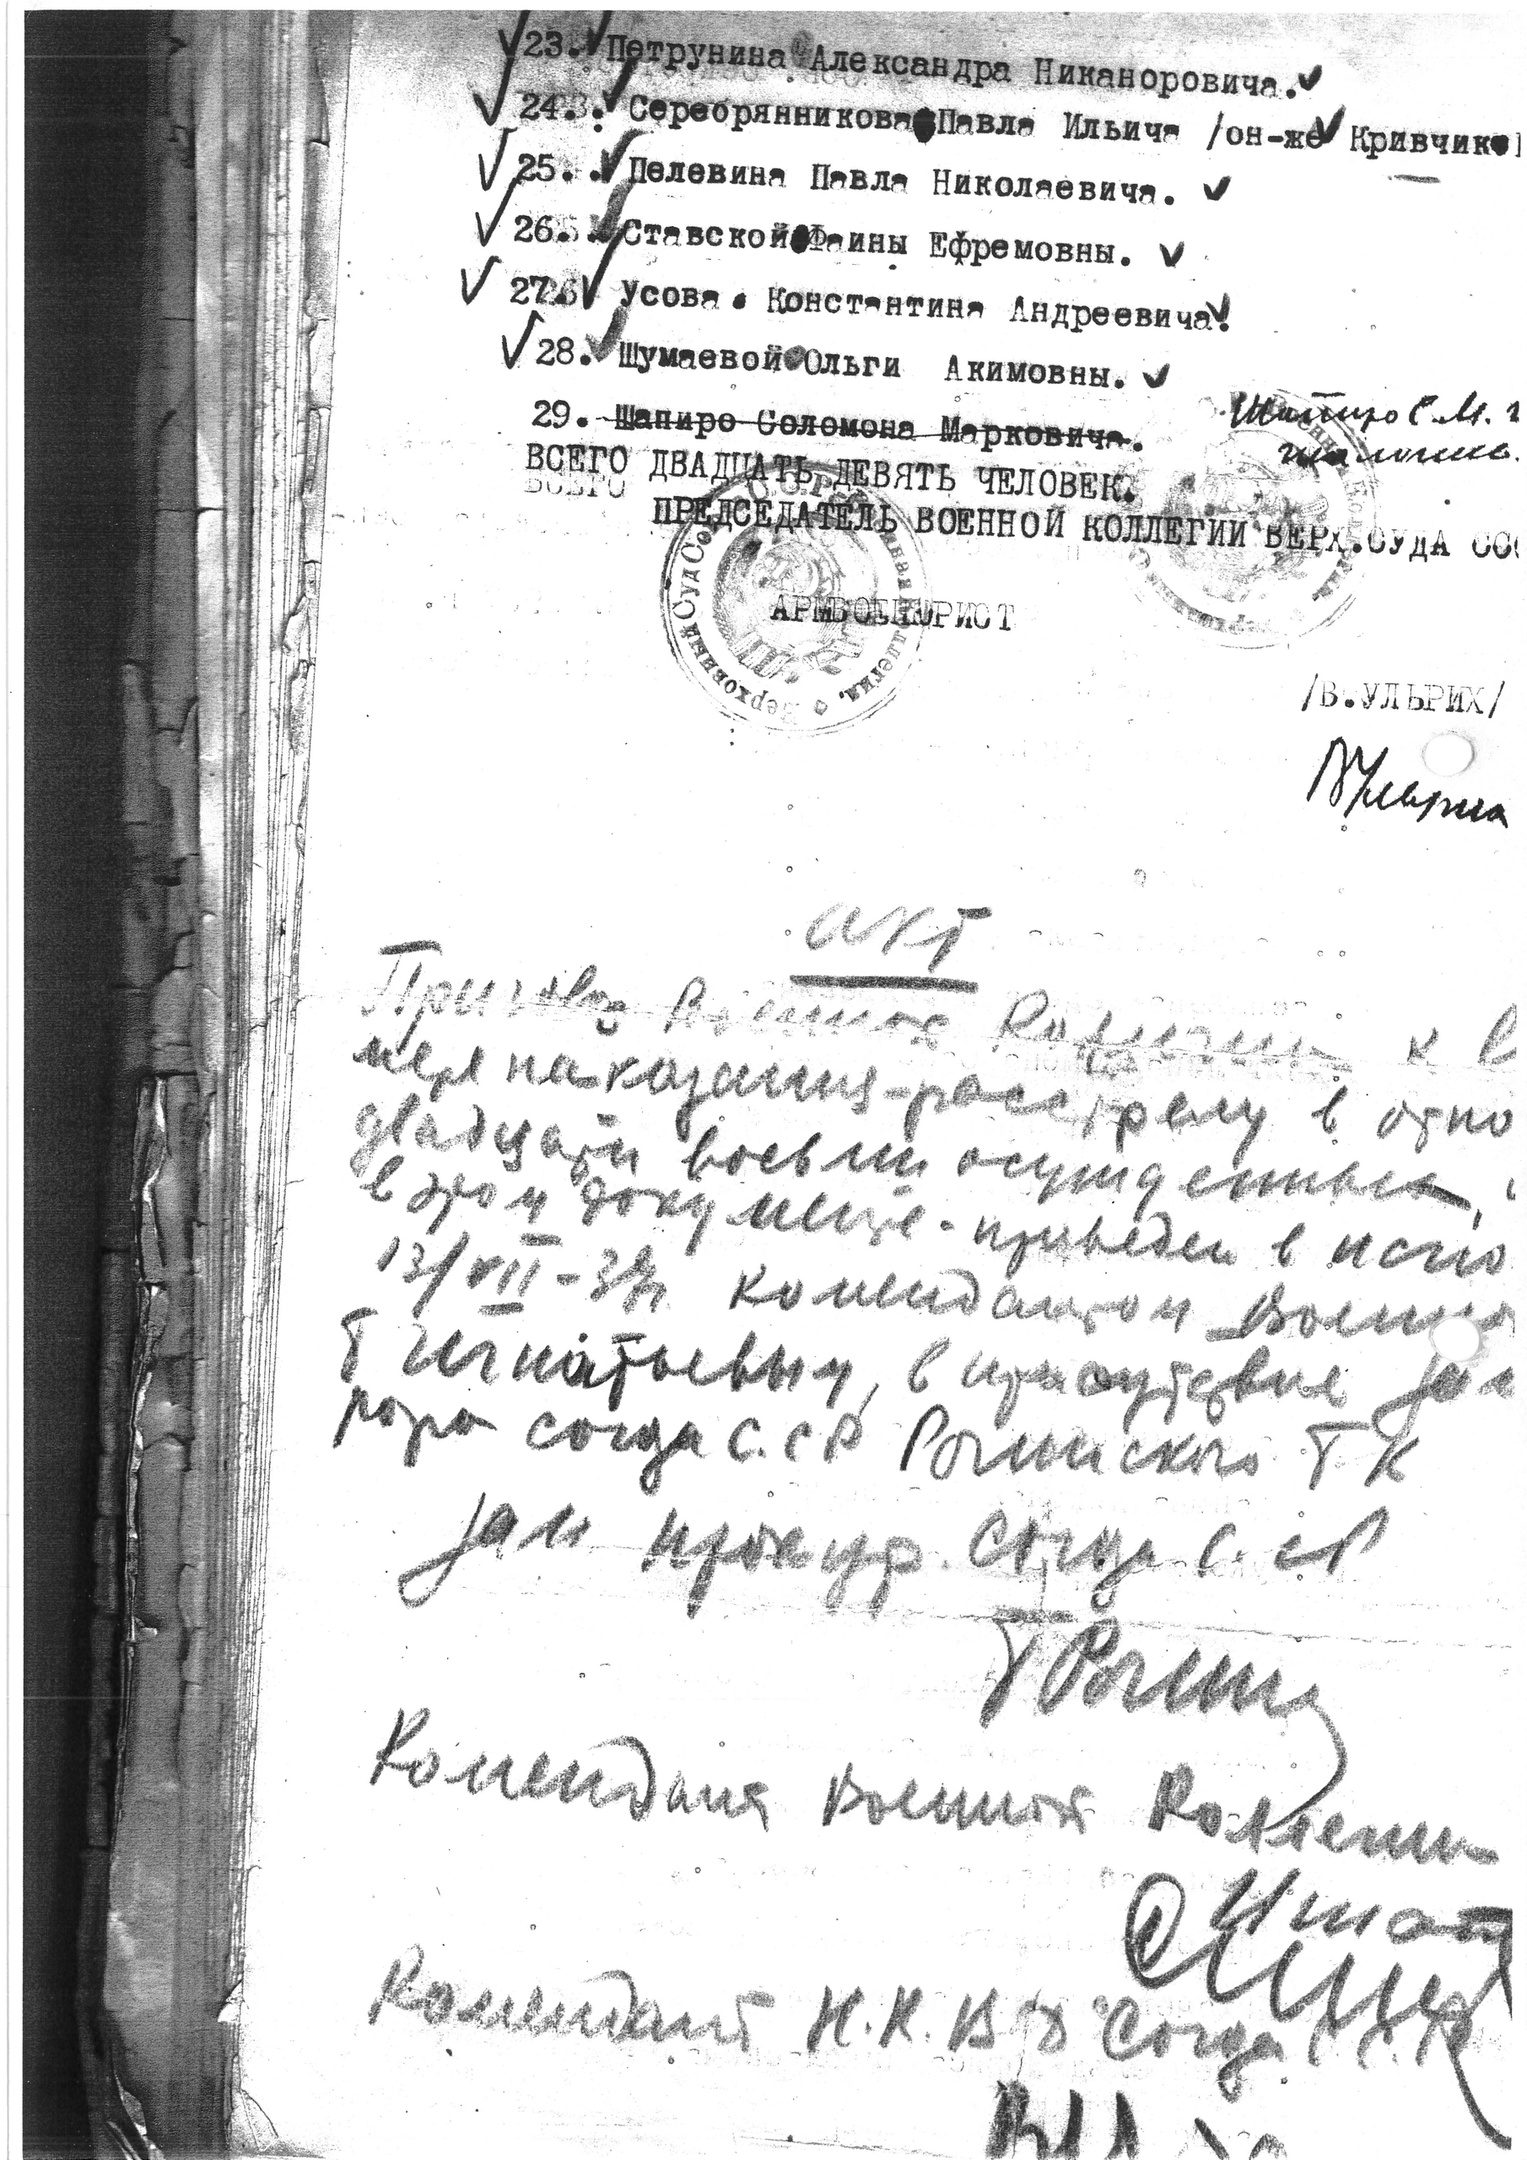 23. Петрунина Александра Никаноровича.
24. Серебрянникова Павла Ильича /он-же Кривчиков
25. Пелевина Павла Николаевича.
26. Ставской Фаины Ефремовны.
27. Усова Константина Андреевича.
28. Шумаевой Ольги Акимовны.
29. Шапиро Соломона Марковича.
Шапиро С.М.
ВСЕГО ДВАДЦАТЬ ДЕВЯТЬ ЧЕЛОВЕК.
ВСЕГО
ПРЕДСЕДАТЕЛЬ ВОЕННОЙ КОЛЛЕГИИ ВЕРХ.СУДА ССС
АРМВОЕНЮРИСТ
Верховный Суд Союза С.С.Р. Военная Коллегия
/В.УЛЬРИХ/
ВУльрих
Акт
Приговор Военной Коллегии к в
мере наказания - расстрелу в отно
двадцати восьми осужденных,
в этом документе - приведен в испо
13/VII-37г. комендантом Военно
т Игнатьевым, в присутствие зам
рора союза С.С.Р Рогинского Г.К
Зам прокур. Союза С.С.Р
Г Рогинс
Комендант Военной Коллегии
Игнат
Комендант Н.К.В.Д Союза С.С.Р